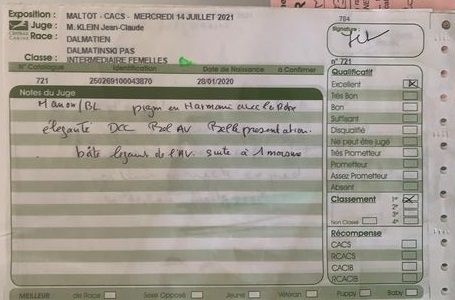 784
Exposition : MALTOT - CACS - MERCREDI 14 JUILLET 2021
Juge : M. KLEIN Jean-Claude
Race : DALMATIEN
DALMATINSKI PAS
Classe : INTERMEDIAIRE FEMELLES
CENTRALE CANINE
Signature
N° Catalogue Identification Date de Naissance à Confirmer
721 250269100043870 28/01/2020
n° 721
Notes du Juge
Marron/BL en Harmonie avec la Robe
élégante DCC Bel AV Belle présentation.
de l'AV. suite à 1 morsure
Qualificatif
Excellent
Très Bon
Bon
Suffisant
Disqualifié
Ne peut être jugé
Très Prometteur
Prometteur
Assez Prometteur
Absent
Classement 1°
2°
3°
Non Classé 4°
Récompense
CACS
RCACS
CACIB
RCACIB
MEILLEUR de Race Sexe Opposé Jeune Vétéran Puppy Baby